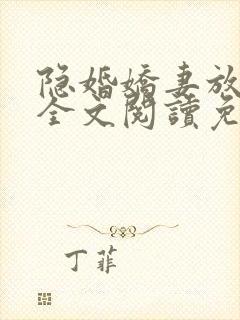 隐婚娇妻放
全文閱讀免
丁菲